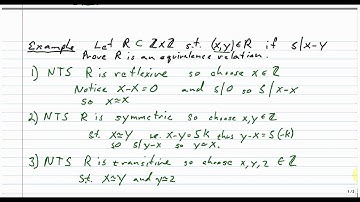 Example Let R ⊂ ℤ×ℤ s.t. (x,y)∈R if 5|x-y
Prove R is an equivalence relation.
1) NTS R is reflexive so choose x∈ℤ
Notice x-x=0 and 5|0 so 5|x-x
so x≃x
2) NTS R is symmetric so choose x,y∈ℤ
s.t. x≃y i.e. x-y=5k thus y-x=5(-k)
so 5|y-x so y≃x.
3) NTS R is transitive so choose x,y,z∈ℤ
s.t. x≃y and y≃z